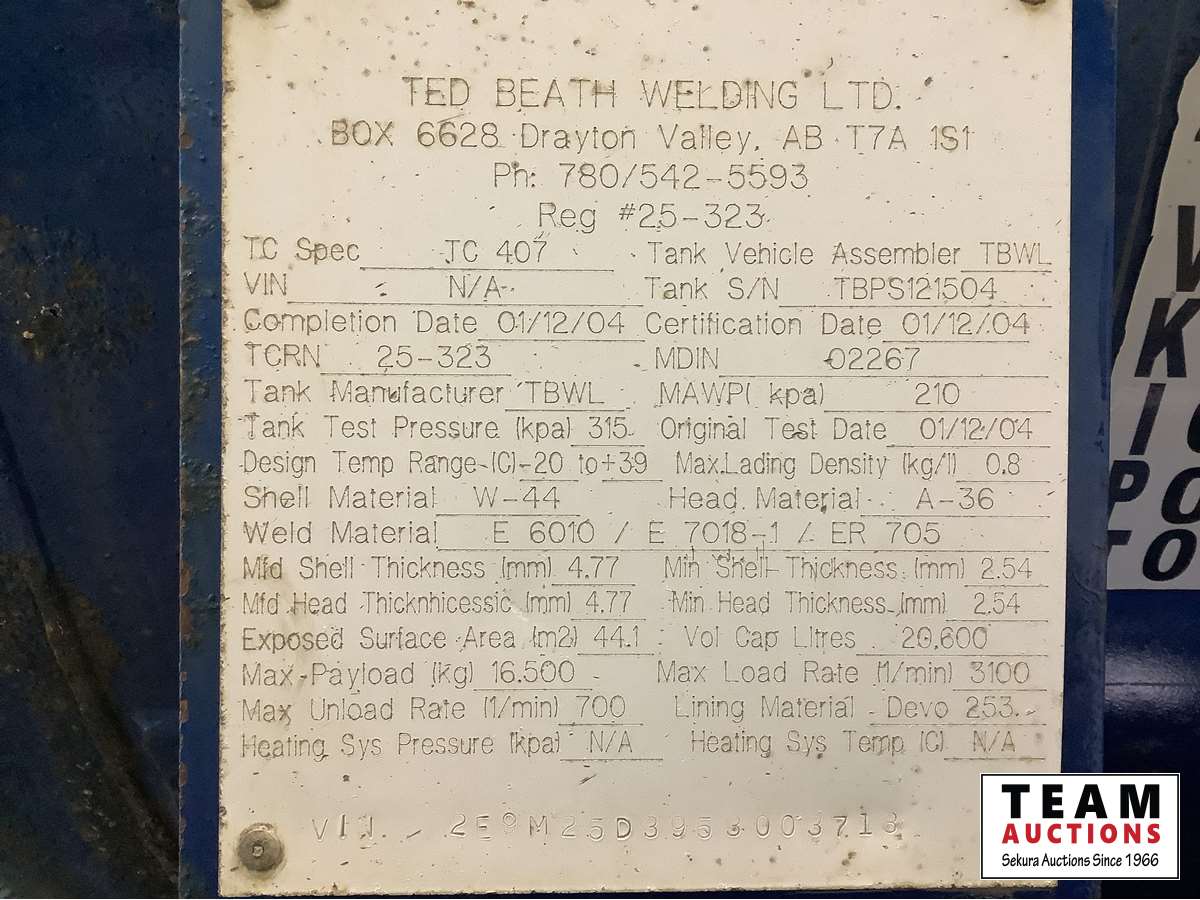 TED BEATH WELDING LTD.
BOX 6628 Drayton Valley, AB T7A 1S1
Ph: 780/542-5593
Reg #25-323
TC Spec TC 407 Tank Vehicle Assembler TBWL
VIN N/A Tank S/N TBPS121504
Completion Date 01/12/04 Certification Date 01/12/04
TCRN 25-323 MDIN 02267
Tank Manufacturer TBWL MAWP( kpa) 210
Tank Test Pressure (kpa) 315 Original Test Date 01/12/04
Design Temp Range (C) -20 to +39 Max.Lading Density (kg/l) 0.8
Shell Material W-44 Head Material A-36
Weld Material E 6010 / E 7018-1 / ER 705
Mfd Shell Thickness (mm) 4.77 Min Shell Thickness (mm) 2.54
Mfd Head Thicknhicessic (mm) 4.77 Min Head Thickness (mm) 2.54
Exposed Surface Area (m2) 44.1 Vol Cap Litres 20,600
Max Payload (kg) 16,500 Max Load Rate (l/min) 3100
Max Unload Rate (l/min) 700 Lining Material Devo 253
Heating Sys Pressure (kpa) N/A Heating Sys Temp (C) N/A
TEAM
AUCTIONS
Sekura Auctions Since 1966